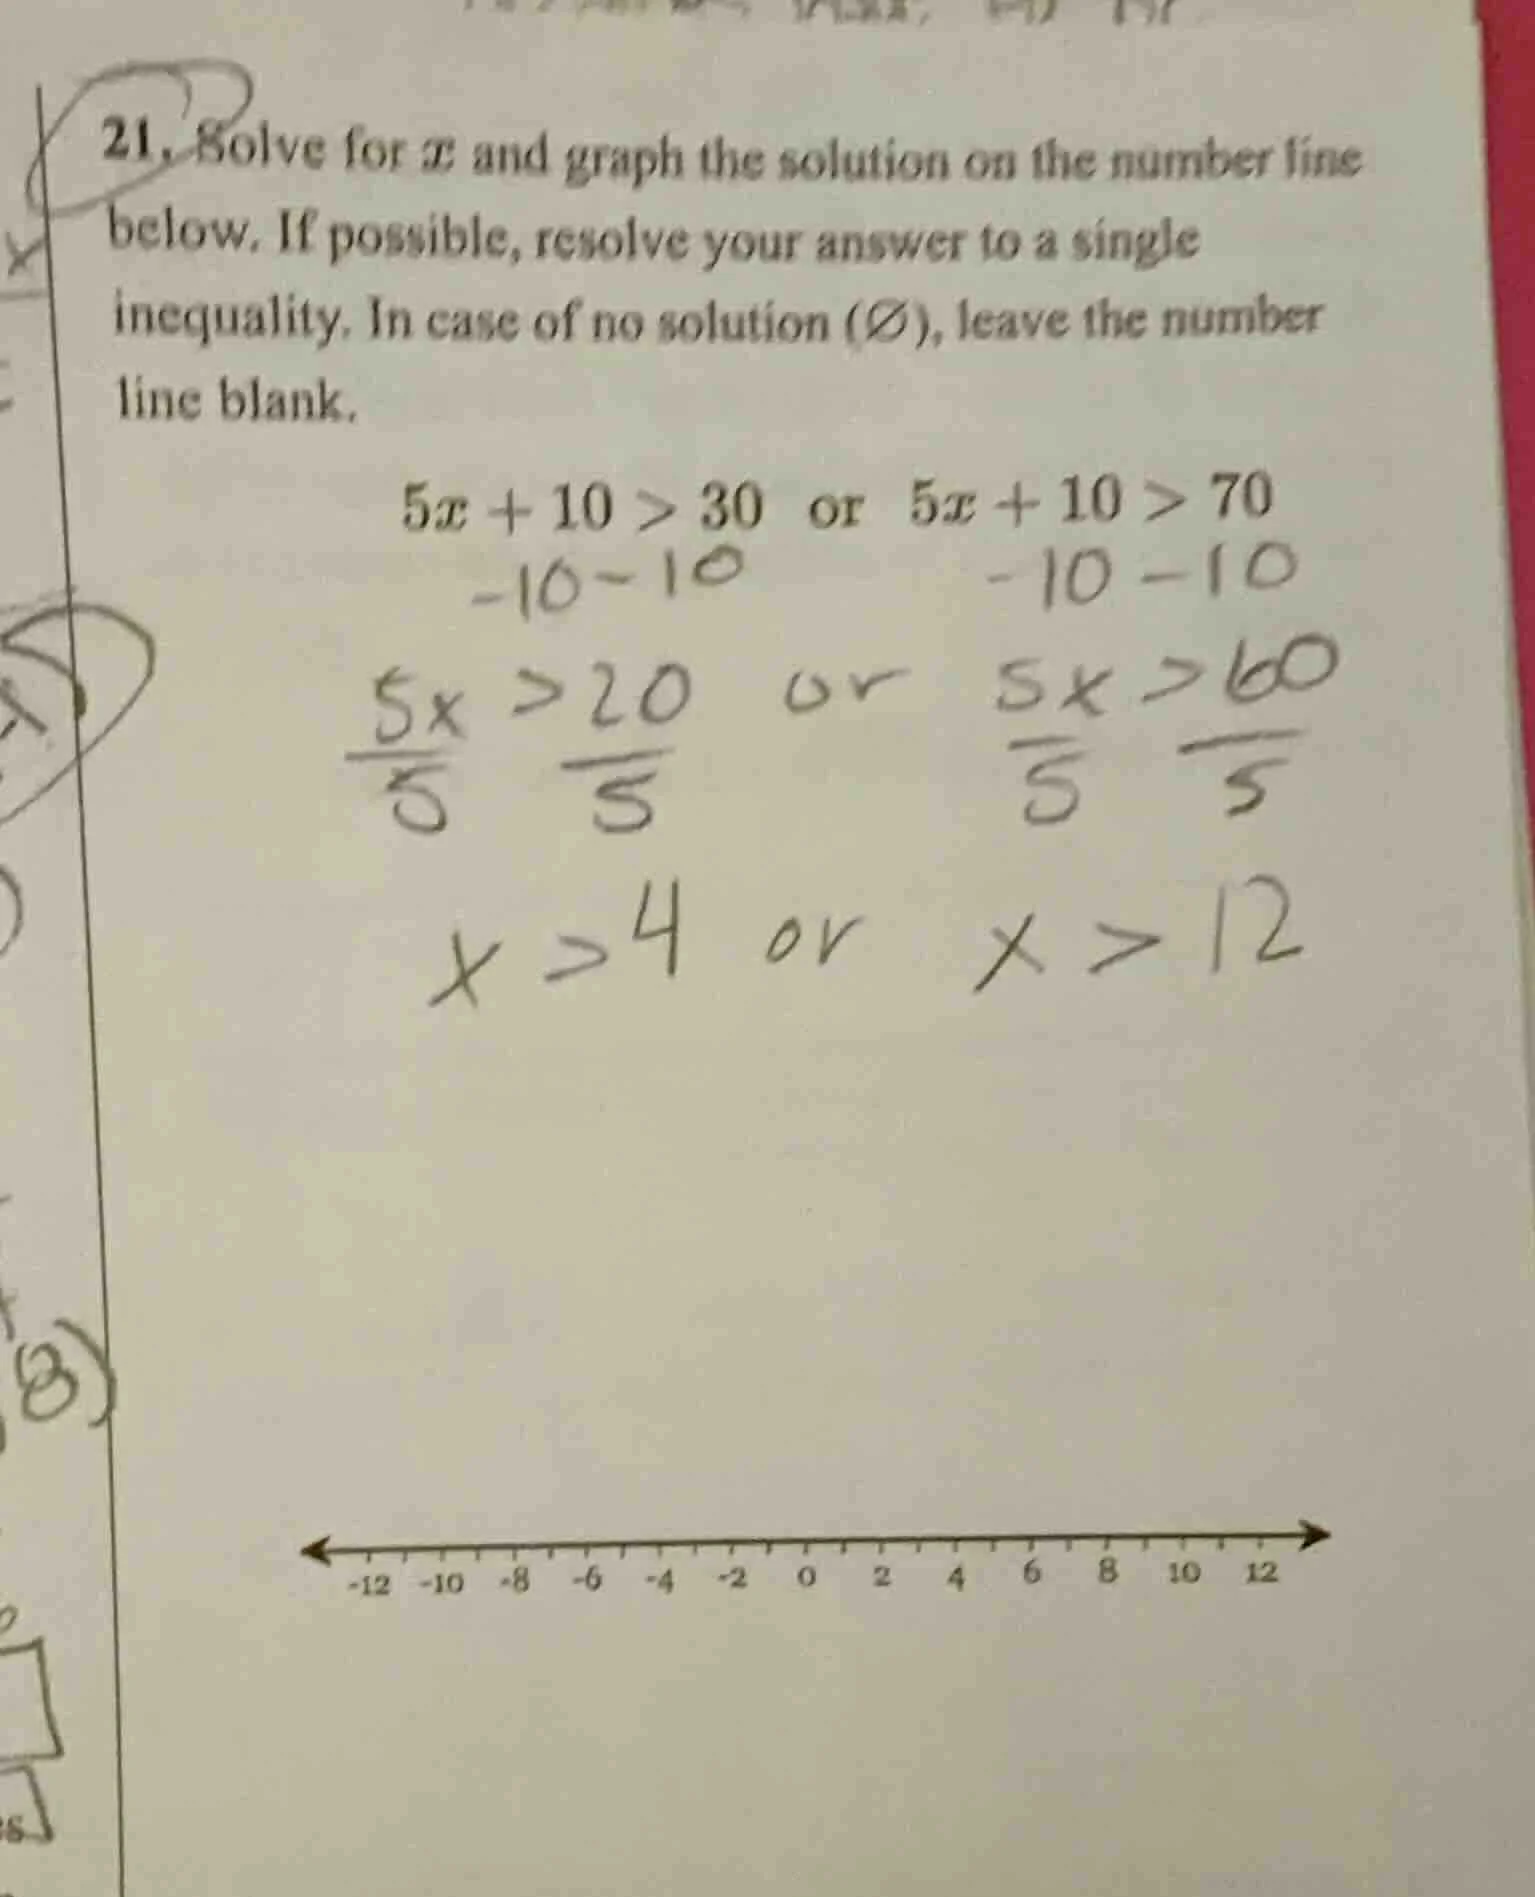 21. Solve for x and graph the solution on the number line
below. If possible, resolve your answer to a single
inequality. In case of no solution (∅), leave the number
line blank.
5x + 10 > 30 or 5x + 10 > 70
-10 -10 -10 -10
5x > 20 or 5x > 60
5 5 5 5
x > 4 or x > 12
8)
-12 -10 -8 -6 -4 -2 0 2 4 6 8 10 12